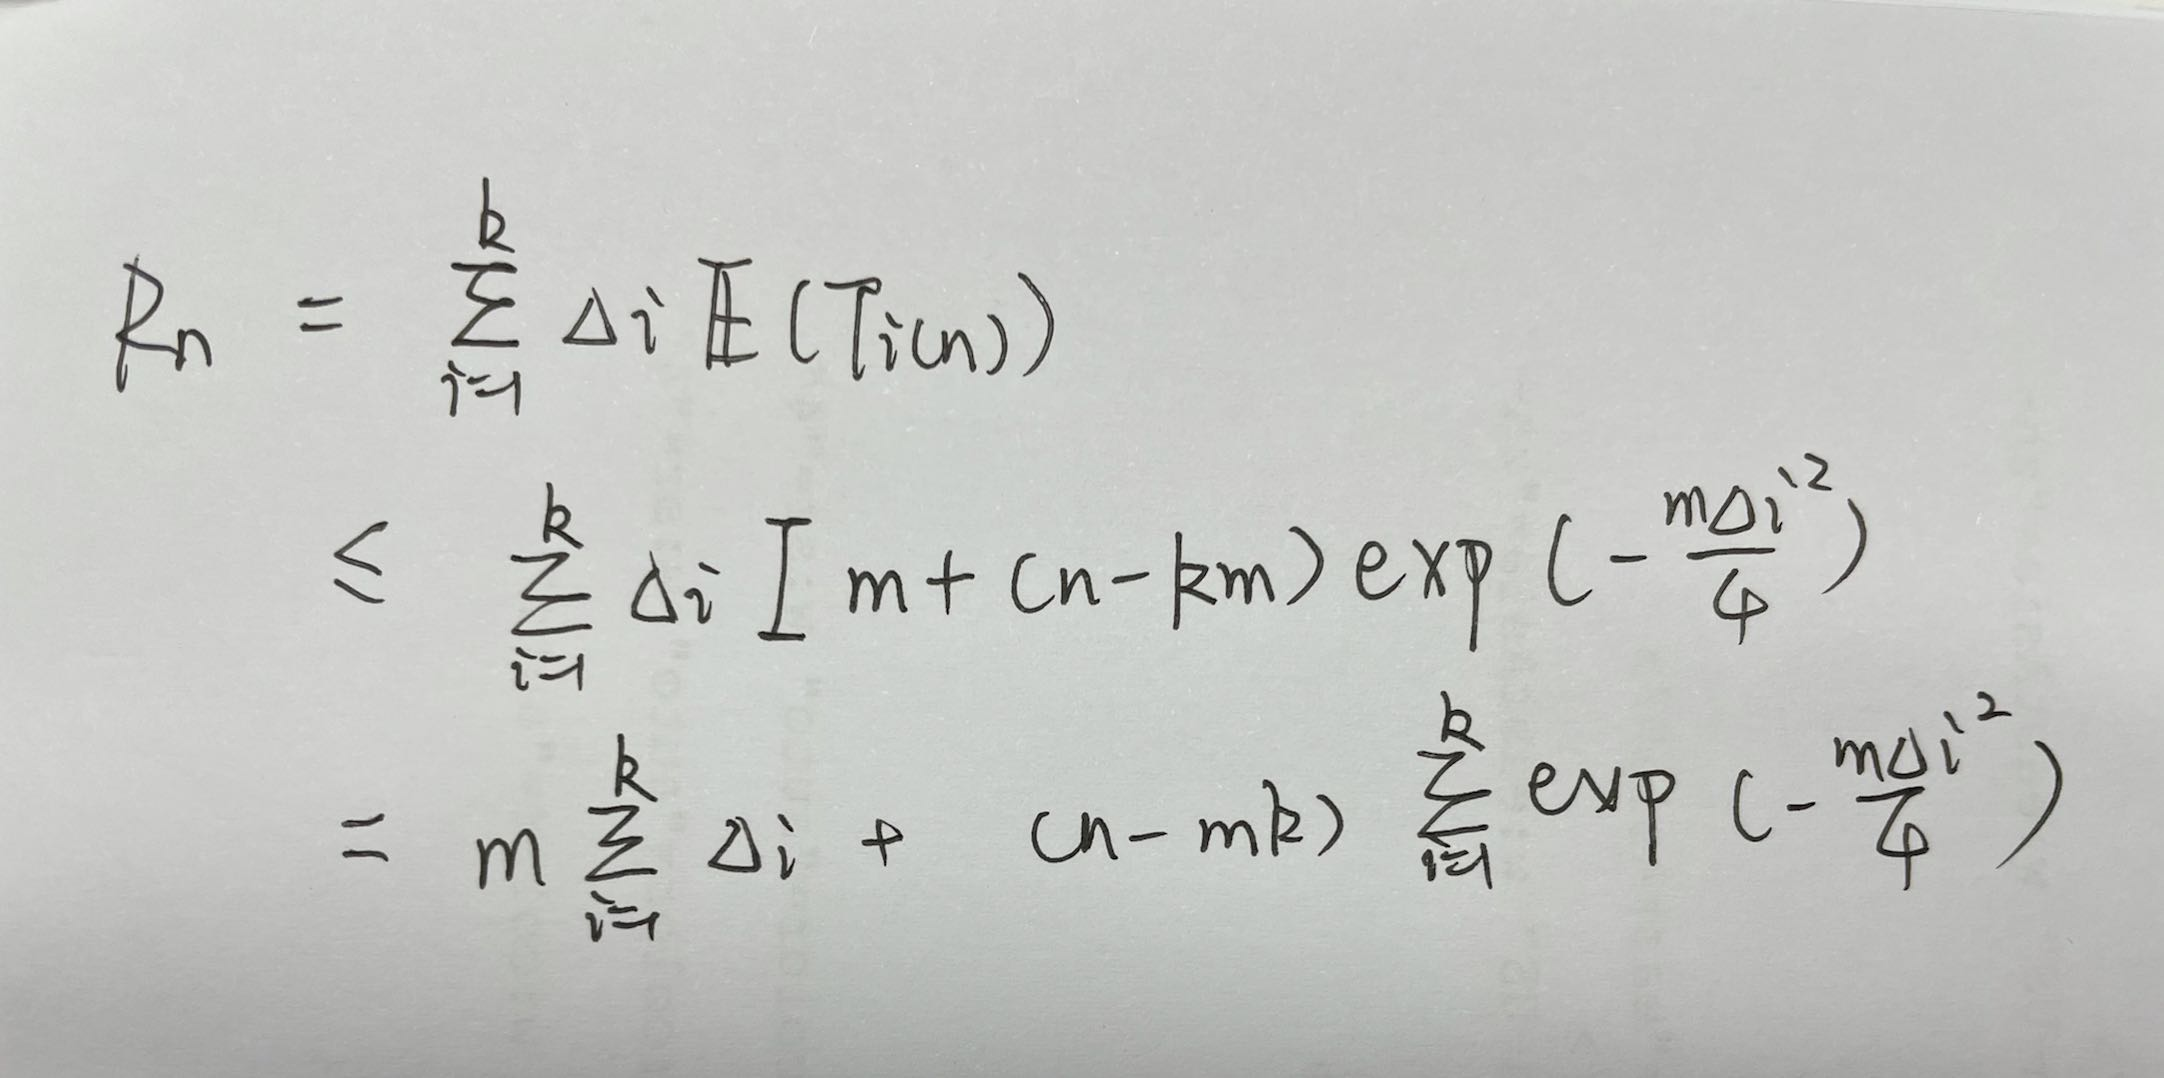 Rn = \sum_{i=1}^{k} Δi 𝔼(Ti(n))
≤ \sum_{i=1}^{k} Δi [ m + (n - km) exp(-\frac{mΔi^2}{4})
= m \sum_{i=1}^{k} Δi + (n - mk) \sum_{i=1}^{k} exp(-\frac{mΔi^2}{4})